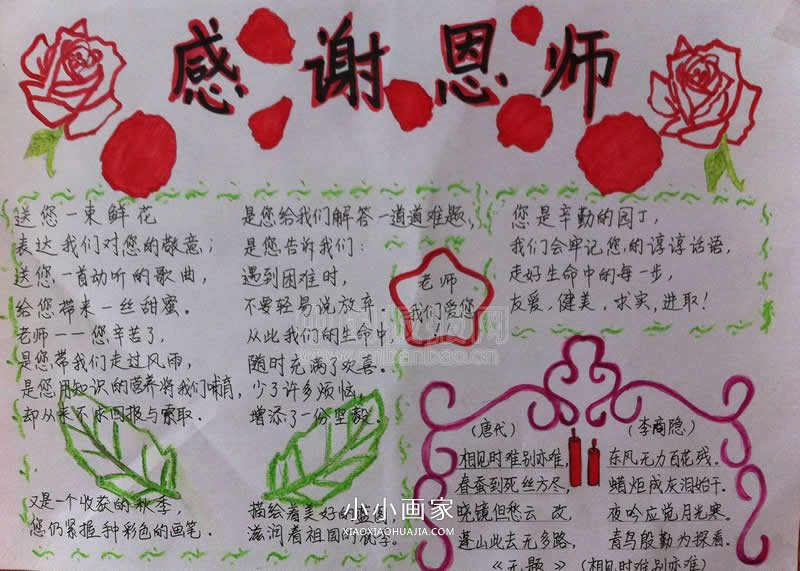 感谢恩师
送您一束鲜花
表达我们对您的敬意；
送您一首动听的歌曲，
给您带来一丝甜蜜。
老师——您辛苦了，
是您带我们走过风雨，
是您用知识的营养将我们哺育，
却从来不求回报与索取．
又是一个收获的秋季，
您仍紧握种彩色的画笔．
是您给我们解答一道道难题，
是您告诉我们：
遇到困难时，
不要轻易说放弃
从此我们的生命中，
随时充满了欢喜。
少了许多烦恼，
增添了一份坚毅
描绘着美好的蓝图，
滋润着祖国的秋季。
老师
我们爱您
！
您是辛勤的园丁，
我们会牢记您的谆谆话语，
走好生命中的每一步，
友爱，健美，求实，进取！
(唐代) (李商隐)
相见时难别亦难， 东风无力百花残．
春蚕到死丝方尽， 蜡炬成灰泪始干．
晓镜但愁云 改， 夜吟应觉月光寒．
蓬山此去无多路， 青鸟殷勤为探看．
《无题》(相见时难别亦难)
小小画家
XIAOXIAOHUAJIA.COM